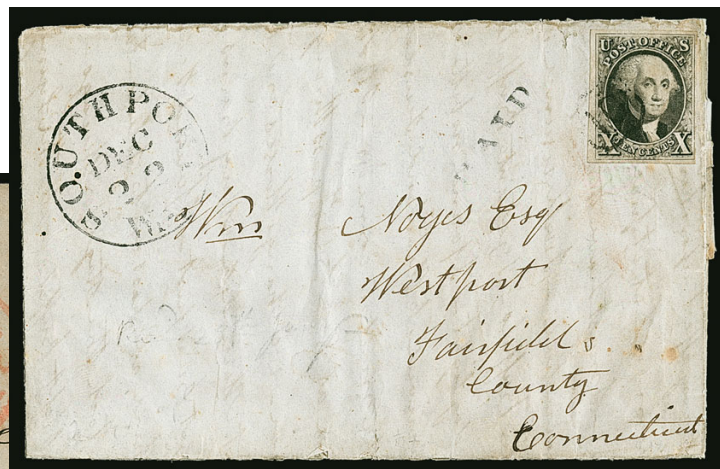 SOUTHPORT
DEC
22
PAID
U S
POST OFFICE
X TEN CENTS X
Wm Noyes Esq
Westport
Fairfield
County
Connecticut